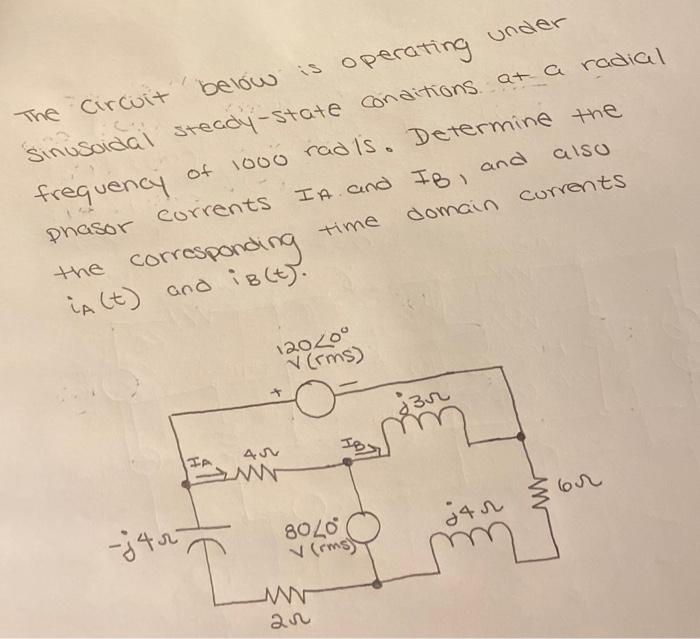 The circuit below is operating under
sinusoidal steady-state conditions at a radial
frequency of 1000 rad/s. Determine the
phasor currents IA and IB, and also
the corresponding time domain currents
iA(t) and iB(t).
120∠0°
V(rms)
+ −
j3Ω
IA 4Ω IB
-j4Ω
80∠0°
V(rms)
j4Ω
6Ω
2Ω